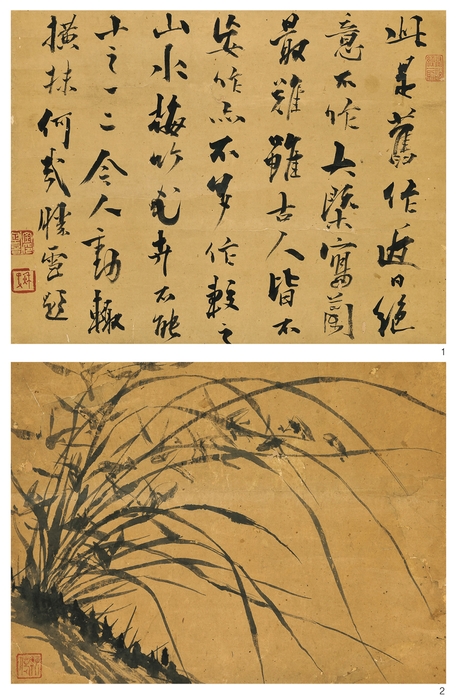 此是舊作近日絶
意不作大槩寫蘭
最難雖古人皆不
妄作亦不多作較之
山水梅竹花卉不能
十之一二今人動輒
橫抹何哉勝雪題
1
2